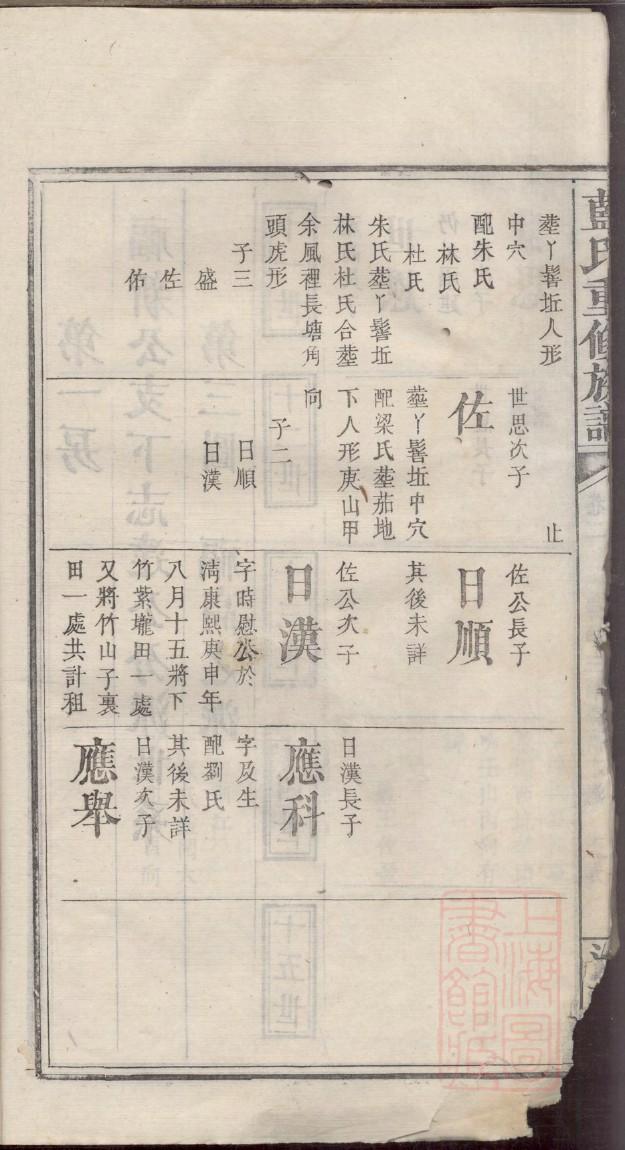 藍氏重修族譜
葬丫髻㘵人形
中穴
配朱氏
林氏
杜氏
朱氏葬丫髻㘵
林氏杜氏合葬
余風裡長塘角
頭虎形
子三
盛
佐
佑
止
世思次子
佐
葬丫髻㘵中穴
配梁氏葬茄地
下人形庚山甲
向
子二
日順
日漢
佐公長子
日順
其後未詳
佐公次子
日漢
字時慰公於
淸康熙庚申年
八月十五將下
竹紫壠田一處
又將竹山子裏
田一處共計租
日漢長子
應科
字及生
配劉氏
其後未詳
日漢次子
應舉
上海圖
書館藏